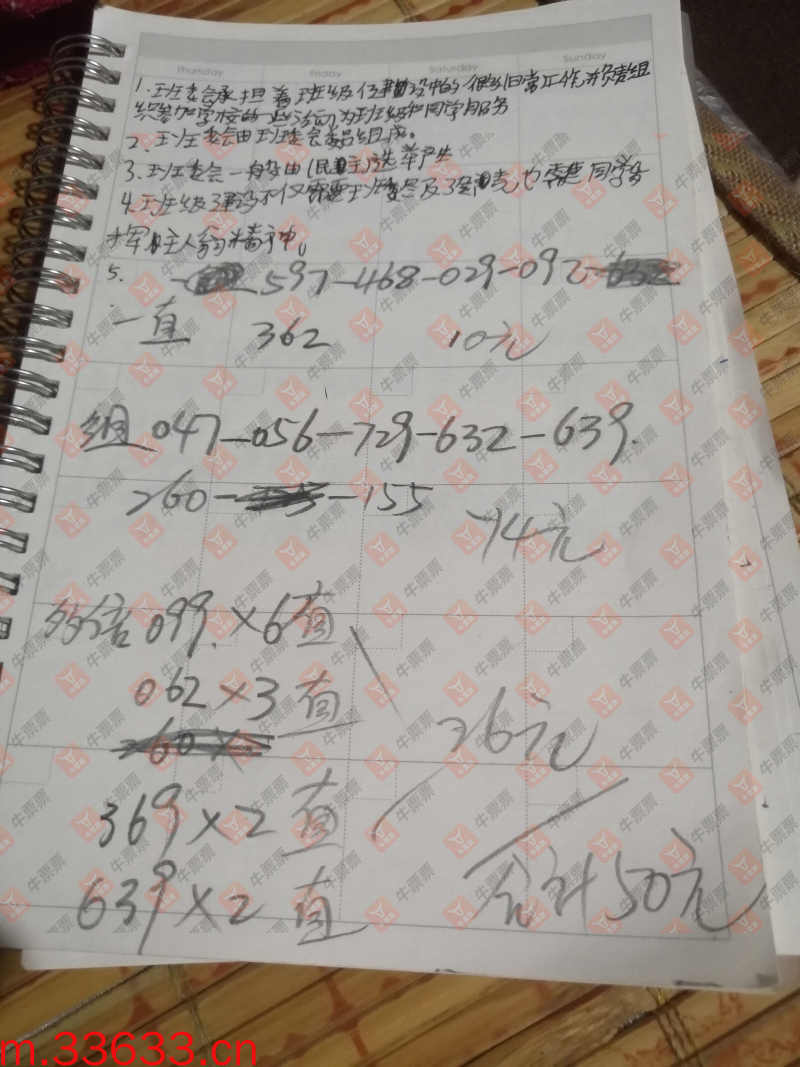 Thursday Friday Saturday Sunday
1.班委会承担着班级建设中的很多日常工作,并负责组
织参加学校的一些活动,为班级和同学服务
2.班委会由班委会委员组成。
3.班委会一般由(民主)选举产生
4.班级建设不仅需要班委会及 也需要同学发
挥主人翁精神。
5. 597-468-029-092-
一直 362 10元
组 047-056-729-632-639.
260- -155 14元
多倍 099.×6直
062×3直
26元
369×2直
639×2直 合计50元
牛票票
m.33633.cn